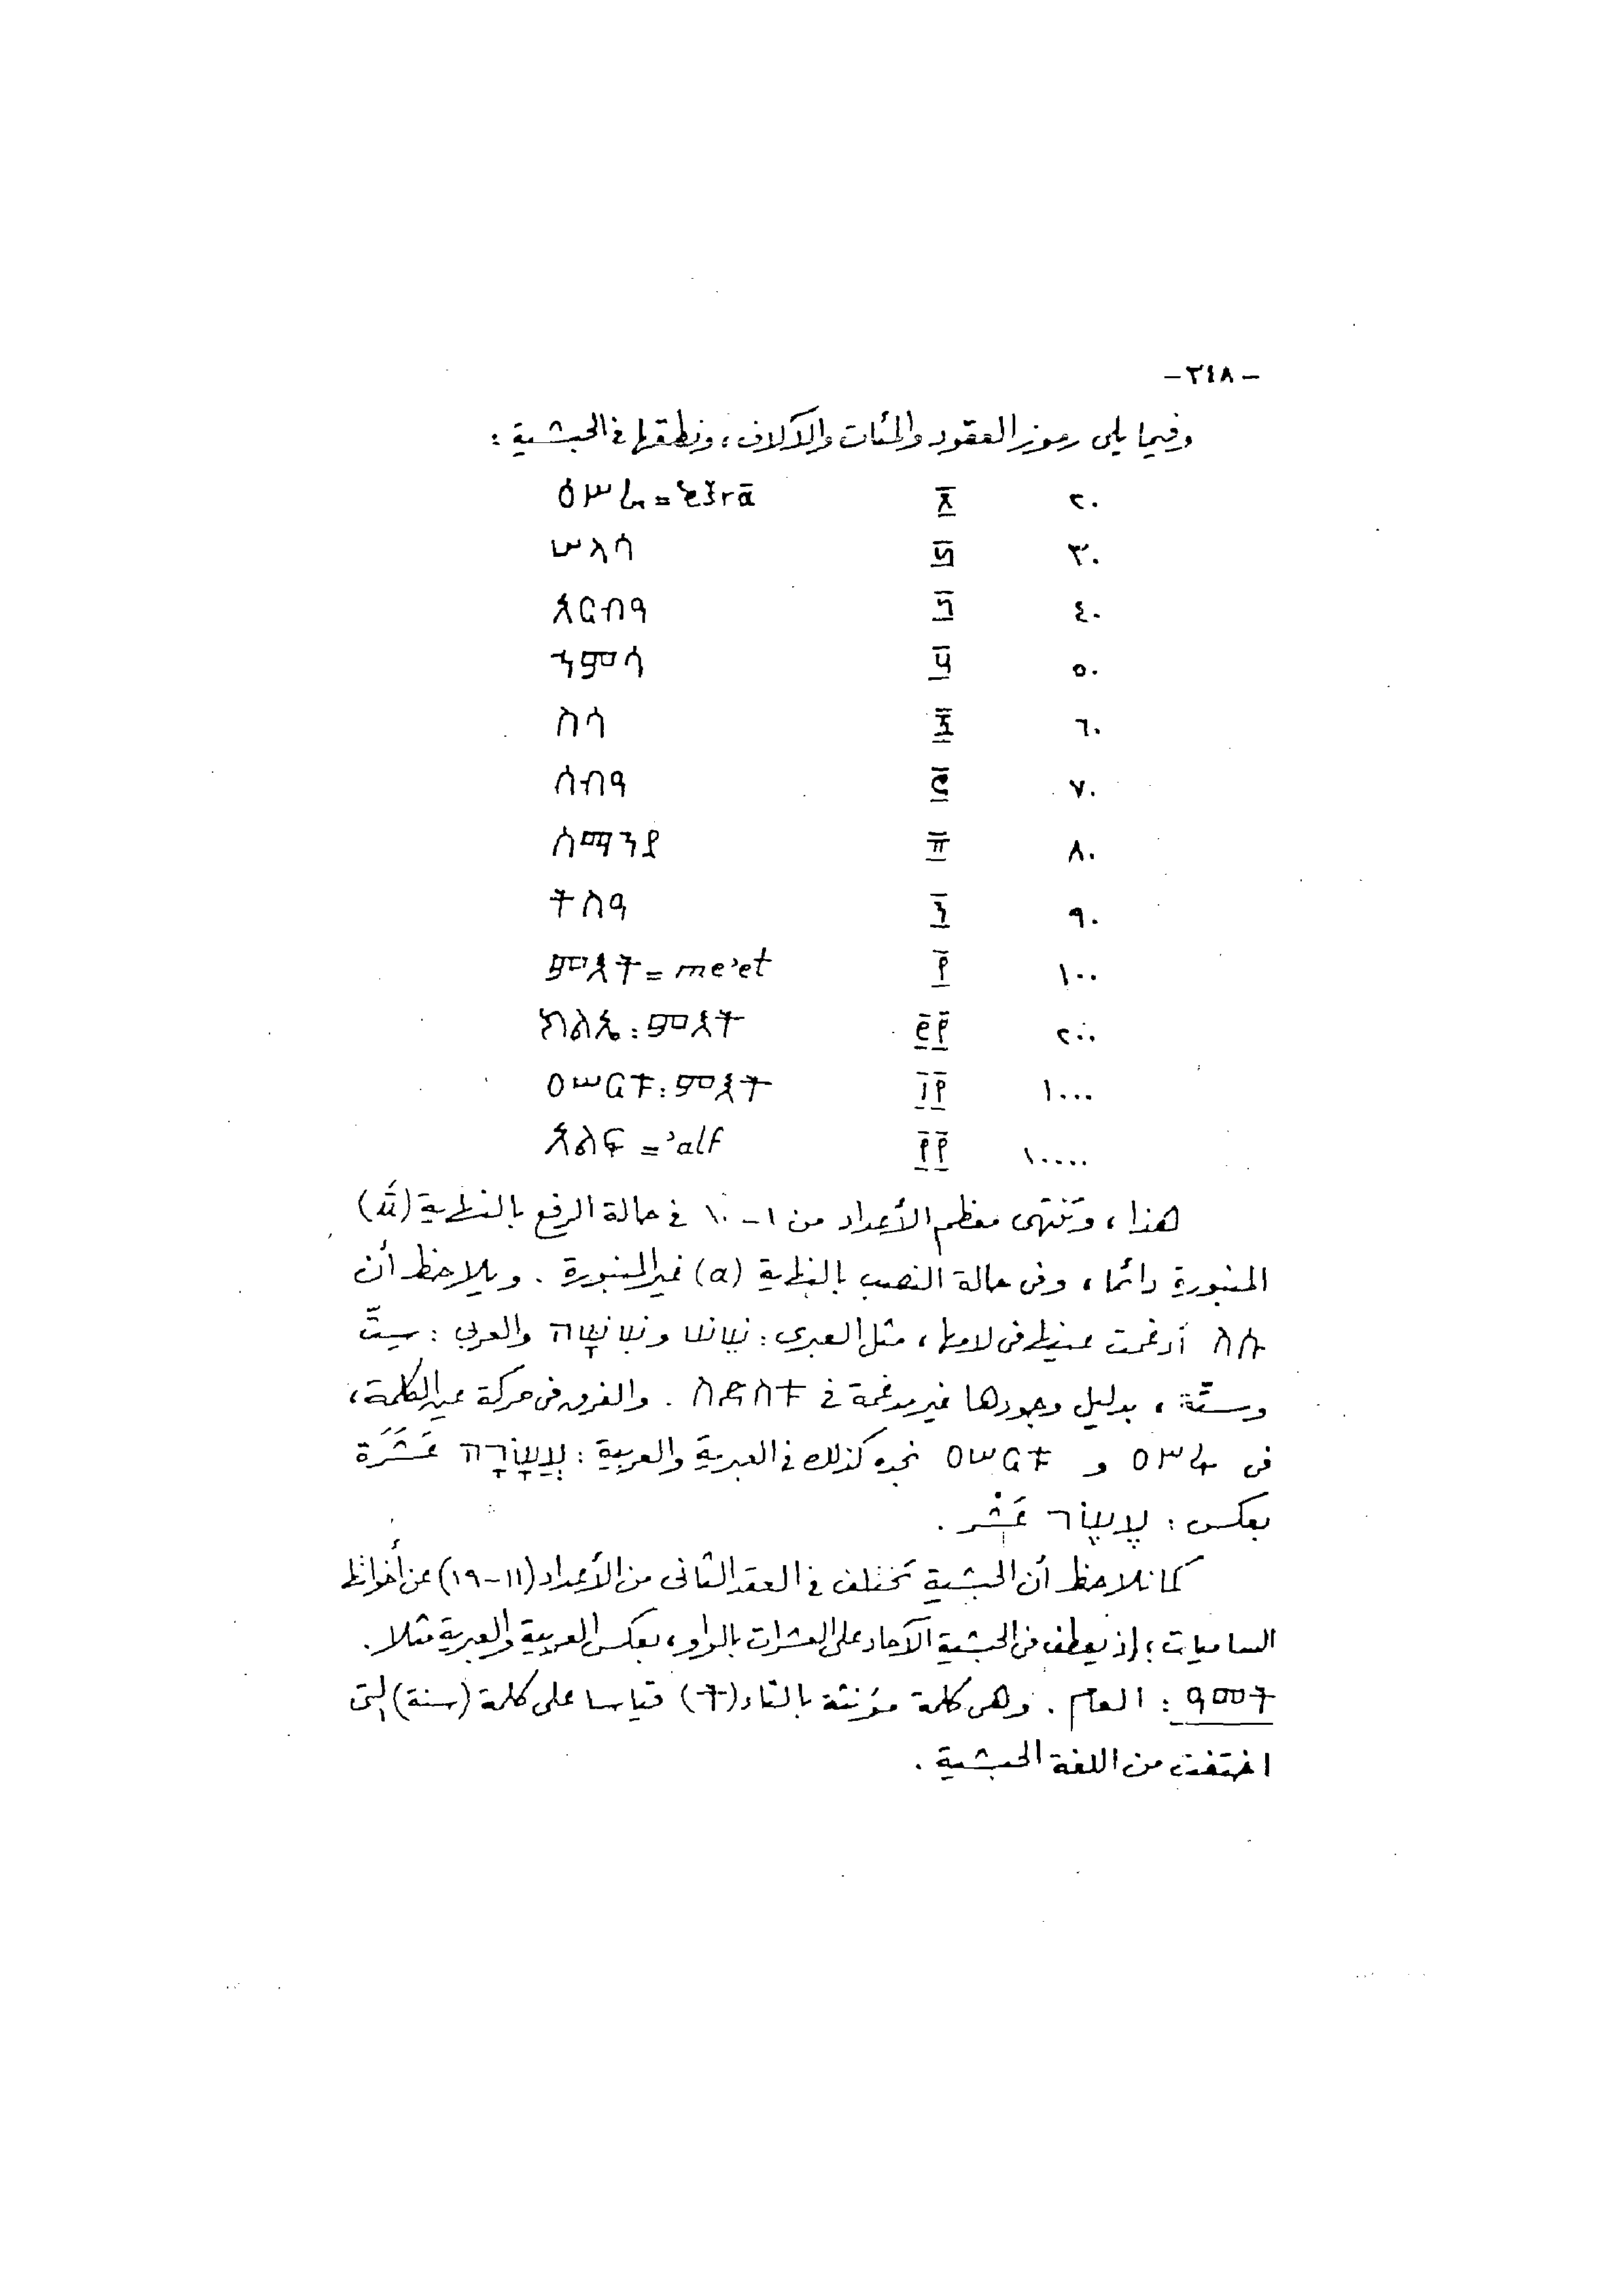 -٣٤٨-
وفيما يلى رموز العقود والمئات والآلاف، ونطقها فى الحبشية:
٢٠ ፳ ዕሥራ = ʿešrā
٣٠ ፴ ሠላሳ
٤٠ ፵ አርብዓ
٥٠ ፶ ኀምሳ
٦٠ ፷ ስሳ
٧٠ ፸ ሰብዓ
٨٠ ፹ ሰማንያ
٩٠ ፺ ትስዓ
١٠٠ ፻ ምእት = me'et
٢٠٠ ፪፻ ክልኤ: ምእት
١٠٠٠ ፲፻ ዐሠርቱ: ምእት
١٠٠٠٠ ፻፻ እልፍ = 'alf
هذا، وتنتهى معظم الأعداد من ١-١٠ فى حالة الرفع بالنظرية (û)
المنبورة دائما، وفى حالة النصب بالنظرية (a) غير المنبورة. ويلاحظ أن
ሱ أدغمت عينها فى لامها، مثل العبرى: שש و ששה والعربى: سِتّ
وستّة، بدليل وجودها غير مدغمة فى ስድስቱ. والفرق فى حركة عين الكلمة،
فى ዐሥሩ و ዐሠርቱ نجده كذلك فى العبرية والعربية: עֲשָׂרָה عَشَرَة
بعكس: עֶשֶׂר عَشْر.
كما نلاحظ أن الحبشية تختلف فى العقد الثانى من الأعداد (١١-١٩) عن أخواتها
الساميات؛ إذ يعطف فى الحبشية الآحاد على العشرات بالواو، بعكس العربية والعبرية مثلا.
ዓመት: العام. وهى كلمة مؤنثة بالتاء (ት) قياسا على كلمة (سنة) التى
اختفت من اللغة الحبشية.